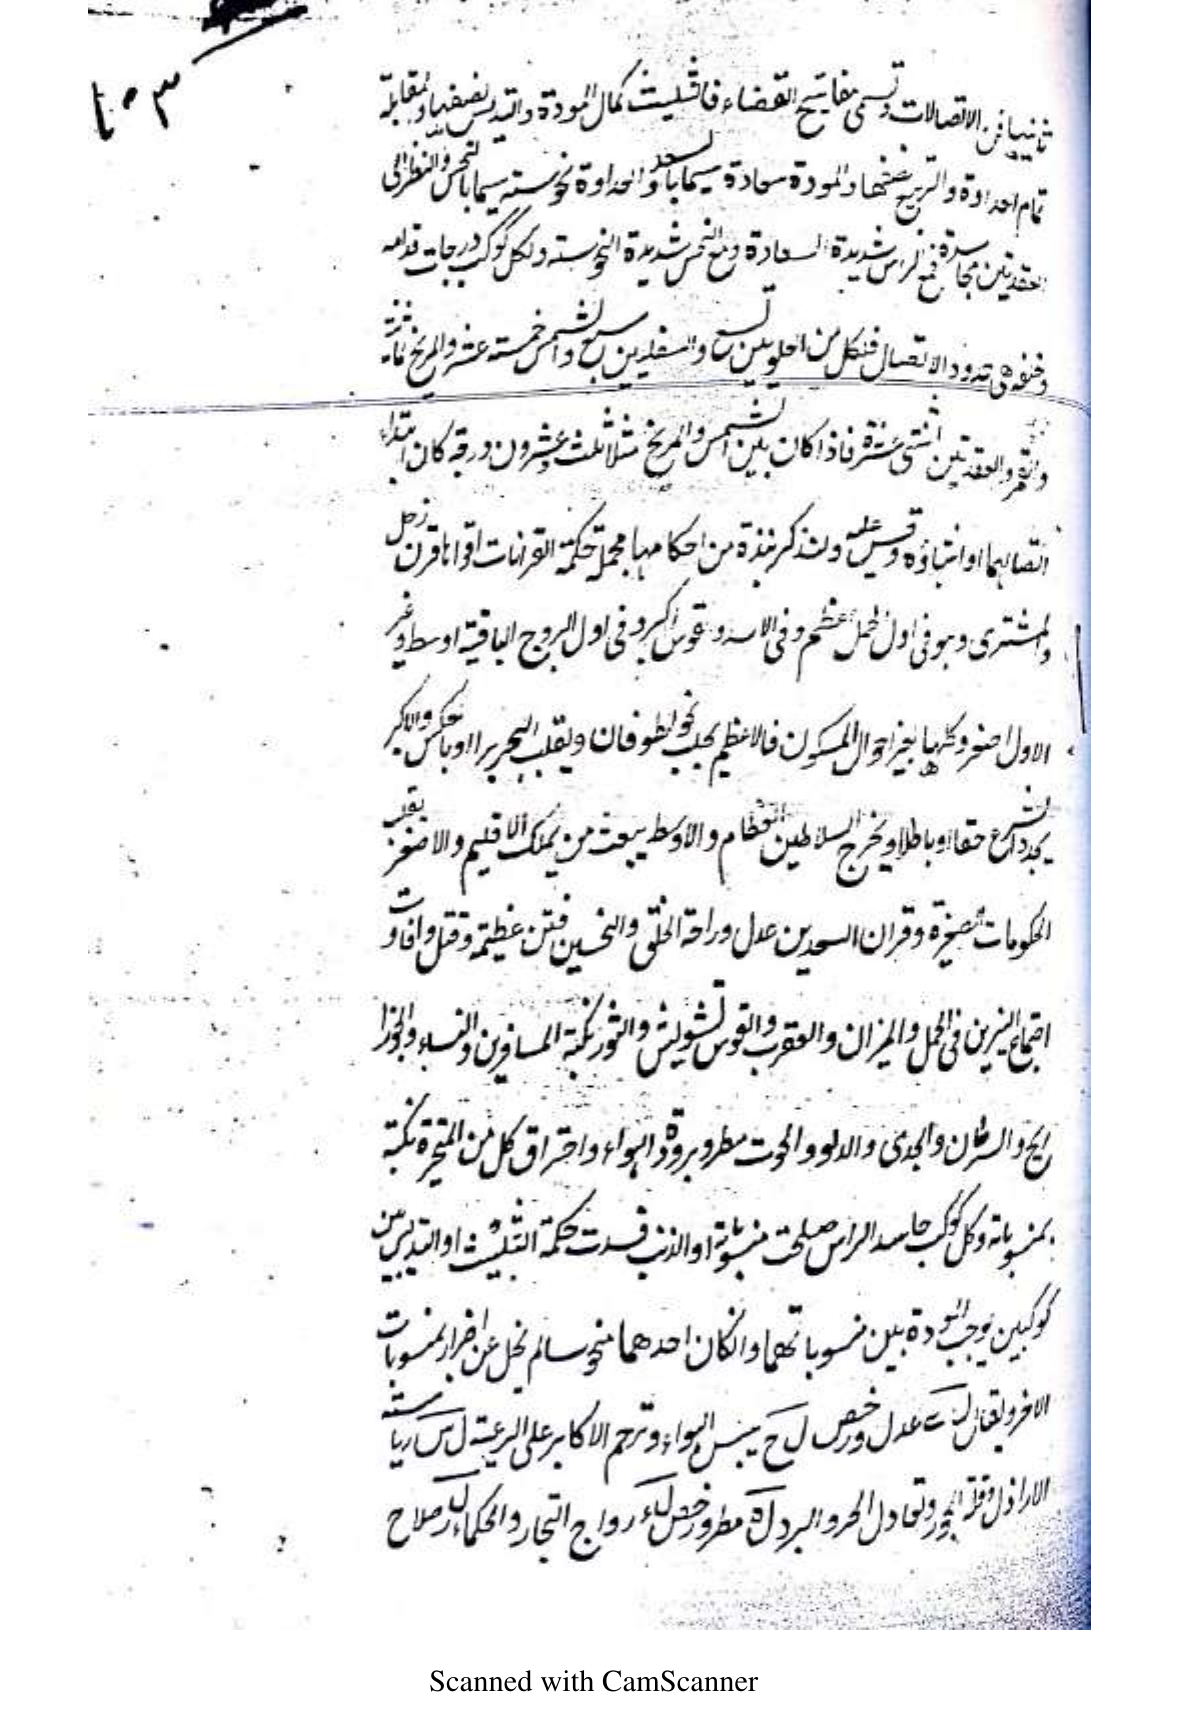 ثانيها فى الاتصالات وتسمى مفاتيح القضاء فالتثليث كمال المودة والتسديس نصفها والمقابلة
تمام العداوة والتربيع نصفها والمودة سعادة سيما بالسعد والعداوة نحوسته سيما بالنحس والنظر الى
العقدتين مجاسدة فمع الراس شديدة السعادة ومع الذنب شديدة النحوسته ولكل كوكب درجات قدامه
وخلفه هى حدود الاتصال فلكل من العلويين تسع والسفليين سبع والشمس خمسته عشر والمريخ ثمانية
والقمر والعقدتين اثنتى عشرة فاذا كان بين الشمس والمريخ مثلا ثلث وعشرون درجة كان ابتداء
اتصالهما او انتهاؤه وقس عليه ولنذكر نبذة من احكامها مجملة حكمة القرانات اقواها قرن زحل
والمشترى وهو فى اول الحمل اعظم وفى الاسد والقوس اكبر وفى اول البروج الباقية اوسط وفى غير
الاول اصغر وكلها يغير احوال المسكون فالاعظم يجلب نحو الطوفان ويقلب البحر برا او بالعكس والاكبر
يجدد الشرع حقا او باطلا ويخرج السلاطين العظام والاوسط يبعث من يملك الاقليم والاصغر يقلب
الحكومات الصغيرة وقران السعدين عدل وراحة الخلق والنحسين فتن عظيمة وقتل وافات و
اجتماع النيرين فى الحمل والميزان والعقرب والقوس تشويش والثور نكبة المسافرين والنساء والجوزا
ريح والسرطان والجدى والدلو والحوت مطر وبرودة الهواء واحتراق كل من المتحيرة نكبة
بمنسوباته وكل كوكب جاسد الراس صلحت منسوباته او الذنب فسدت حكمة التثليث او التسديس من
كوكبين يوجب المودة بين منسوباتهما وان كان احدهما منحوسا لم يخل عن اضرار بمنسوبات
الاخر ويقال عدل ورخص ل ح يبس الهواء وترحم الاكابر على الرعية ل س رياسته
الاراذل وقلة الجور وتعادل الحر والبرد ل ه مطر ورخص رواج التجار والحكماء ل ر صلاح
Scanned with CamScanner